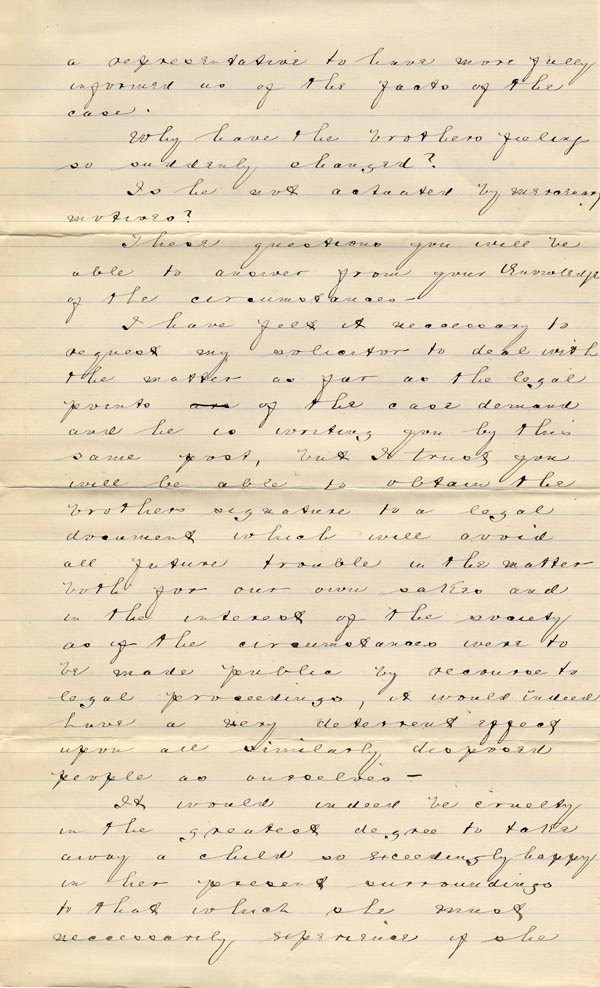 a representative to have more fully
informed us of the facts of the
case.
Why have the brothers feeling
so suddenly changed?
Is he not actuated by mercenary
motives?
These questions you will be
able to answer from your knowledge
of the circumstances -
I have felt it neccessary to
request my solicitor to deal with
the matter as far as the legal
points of the case demand
and he is writing you by this
same post, but I trust you
will be able to obtain the
brothers signature to a legal
document which will avoid
all future trouble in the matter
both for our own sakes and
in the interest of the society
as if the circumstances were to
be made public by recourse to
legal proceedings, it would indeed
have a very deterrent effect
upon all similarly disposed
people as ourselves -
It would indeed be cruelty
in the greatest degree to take
away a child so exceedingly happy
in her present surroundings
to that which she must
neccessarily experience if she